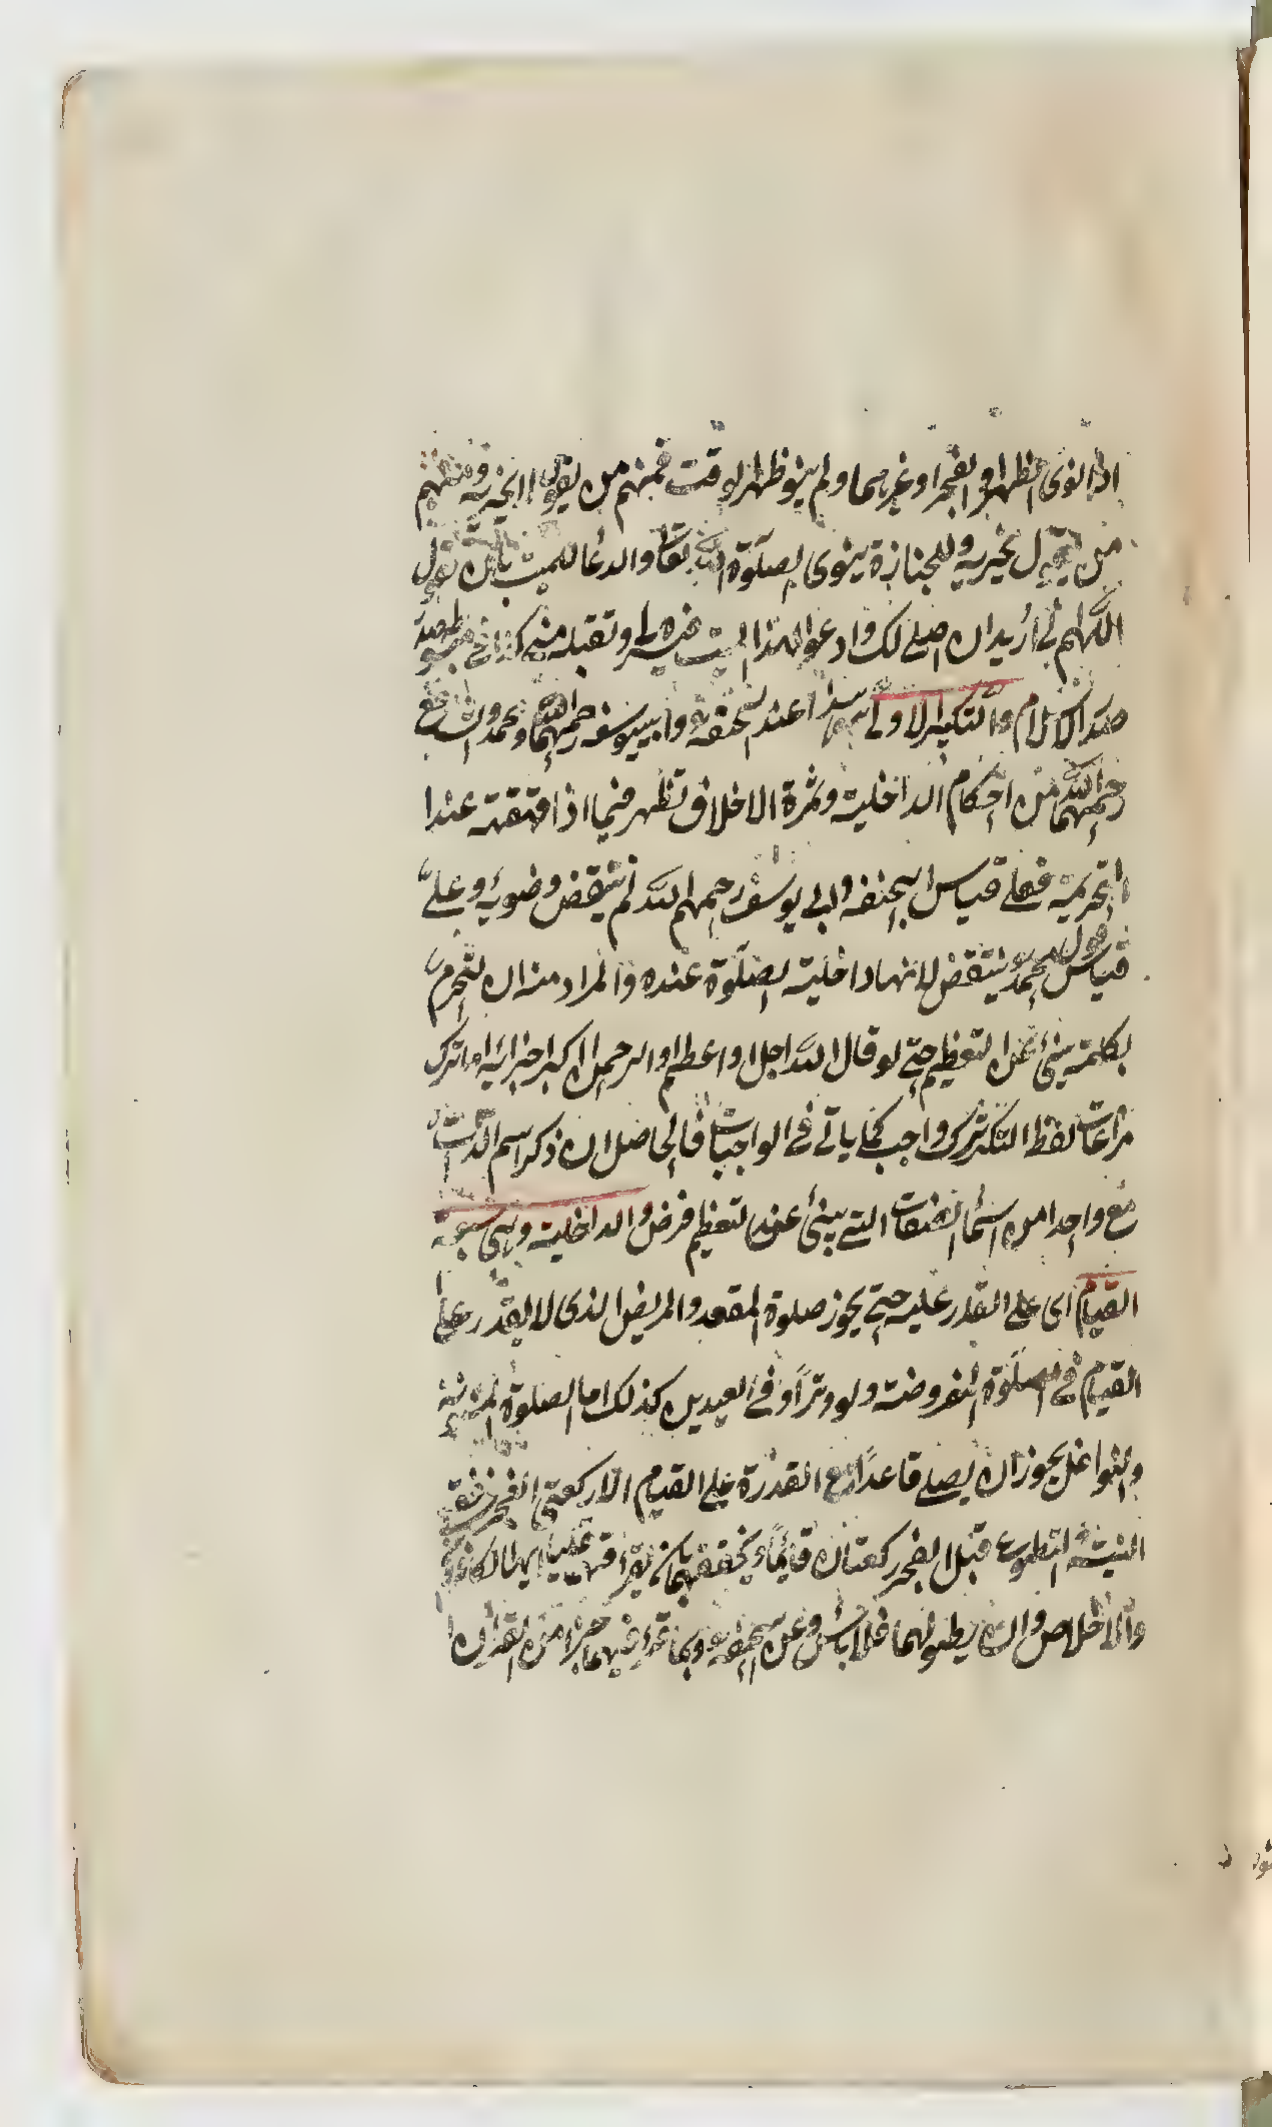 اذا نوى الظهر او الفجر او غيرهما ولم ينو ظهر الوقت فمنهم من يقول لا يجزيه ومنهم
من يقول يجزيه وللجنازة ينوى الصلوة لله تعا والدعا للميت بان تقول
اللهم انى اريد ان اصلے لك وادعوا لهذا الميت فيسره لے وتقبله منى كذا فى
صدر الاسلام والتكبير الاولے عند ابيحنفة وابييوسف رحمهما الله ومحمد والشافع
رحمهما الله من احكام الداخلية وثمرة الاخلاف تظهر فيما اذا قهقهة عندا
التحريمة فعلے قياس ابيحنفه وابى يوسف رحمهم الله لم ينتقض وضويه وعلے
قياس قول محمد ينتقض لانها داخلية الصلوة عنده والمراد منه ان التحرم
بكلمة ينبئ عن التعظيم حتے لو قال الله اجل او اعظم او الرحمن اكبر اجزائه اما ترك
مراعات لفظ التكبر ترك واجب كما ياتے فے الواجبات فالحاصل ان ذكر اسم الذات
مع واحد من اسماء الصفات التے ينبئ عن التعظيم فرض والداخلية وهى سبعة
القيام اى على القادر عليه حتے يجوز صلوة المقعد والمريض الذى لا يقدر على
القيام فے الصلوة المفروضة ولو وترا وفے العيدين كذلك اما الصلوة المسنونة
والنوافل يجوز ان يصلے قاعدا مع القدرة على القيام الا ركعتى الفجر
التطوع قبل الفجر ركعتان قائما يخففهما بان يقرأ فيهما الكافرون
والاخلاص وان يطولهما فلا باس وعن ابيحنفه ربما قرأت فيهما جزء من القران